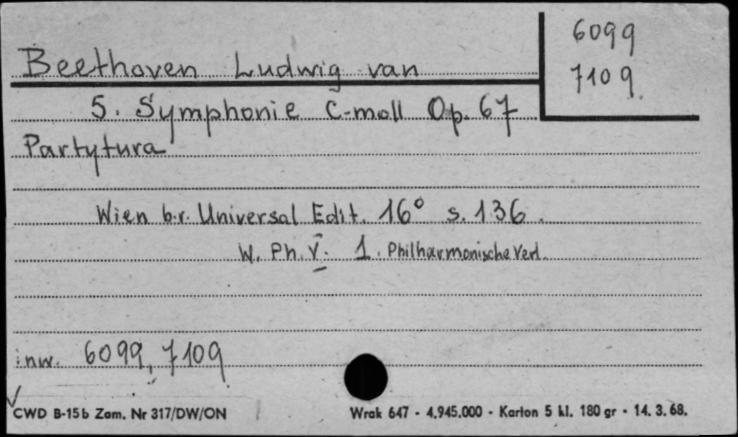 6099
7109.
Beethoven Ludwig van
5. Symphonie C-moll Op. 67
Partytura
Wien b.r. Universal Edit. 16° s. 136.
W. Ph. V. 1. Philharmonische Verl.
inw. 6099, 7109
CWD B-15b Zam. Nr 317/DW/ON
Wrak 647 - 4.945.000 - Karton 5 kl. 180 gr - 14. 3. 68.